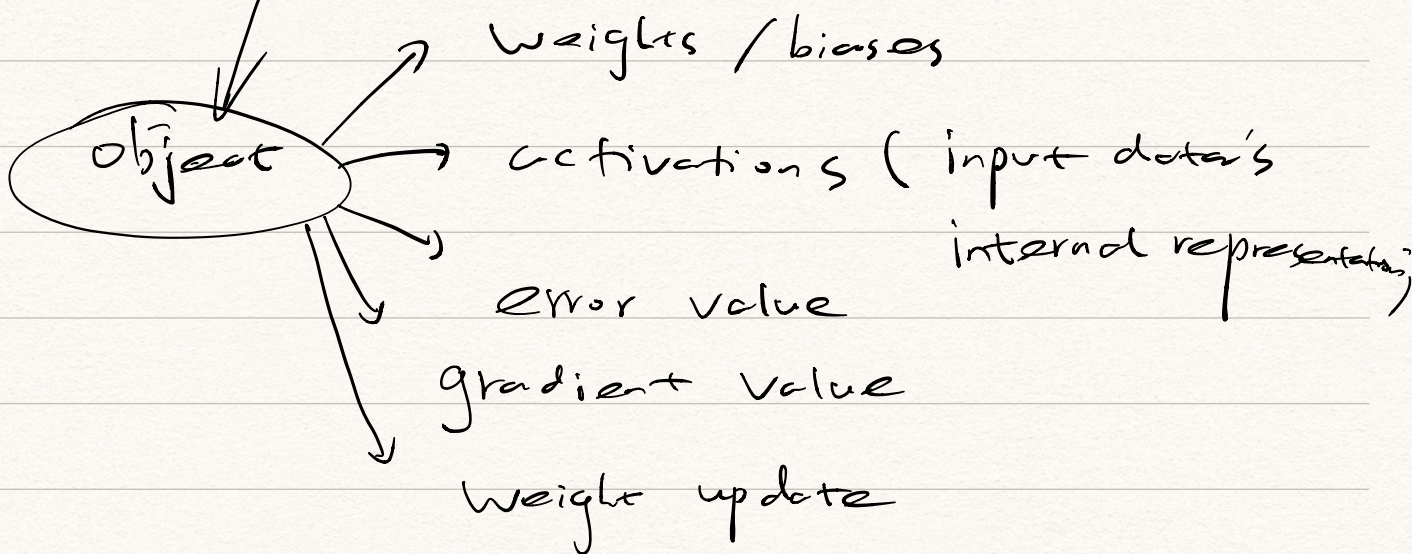 weights / biases
object
activations ( input data's
internal representation)
error value
gradient value
weight update